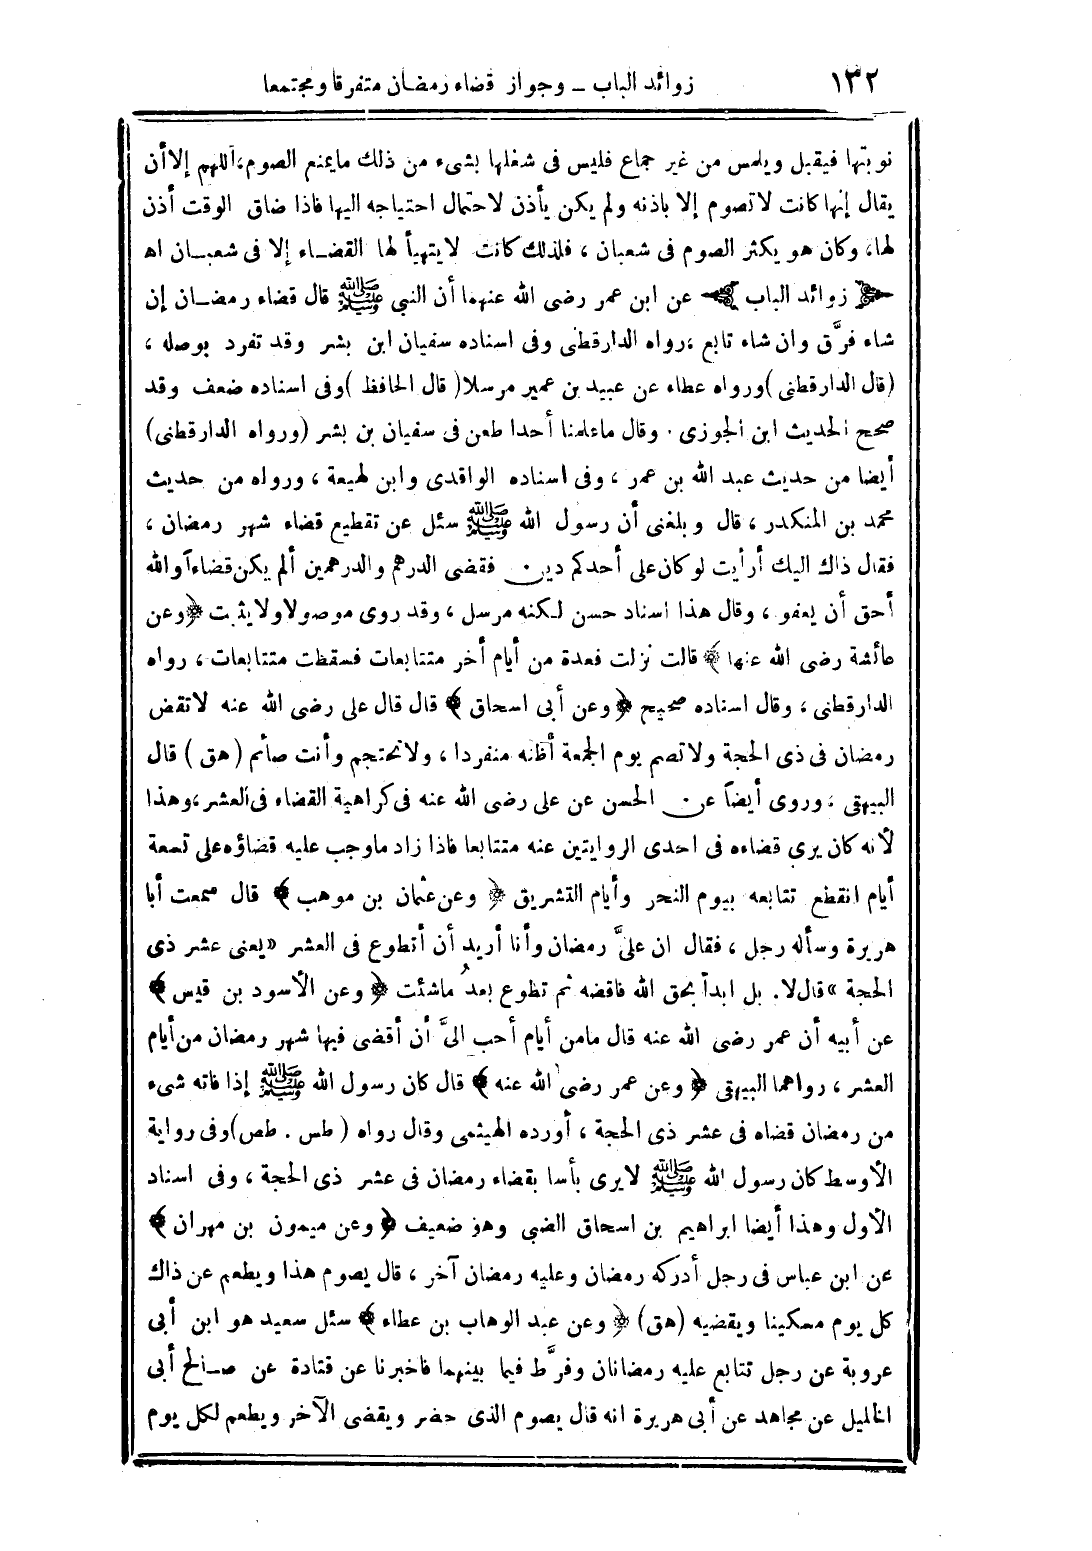 ١٣٢ زوائد الباب ـ وجواز قضاء رمضان متفرقا ومجتمعا
نوبتها فيقبل ويلمس من غير جماع فليس فى شغلها بشىء من ذلك مايمنع الصوم، أللهم إلاأن
يقال إنها كانت لاتصوم إلا باذنه ولم يكن يأذن لاحتمال احتياجه اليها فاذا ضاق الوقت أذن
لها، وكان هو يكثر الصوم فى شعبان ، فلذلك كانت لايتهيأ لها القضـاء إلا فى شعبـان اه
﴿ زوائد الباب ﴾ عن ابن عمر رضى الله عنهما أن النبي ﷺ قال قضاء رمضـان إن
شاء فرَّق وان شاء تابع ، رواه الدارقطنى وفى اسناده سفيان ابن بشر وقد تفرد بوصله ،
(قال الدارقطنى) ورواه عطاء عن عبيد بن عمير مرسلا (قال الحافظ) وفى اسناده ضعف وقد
صحح الحديث ابن الجوزى . وقال ماعلمنا أحدا طعن فى سفيان بن بشر (ورواه الدارقطنى)
أيضا من حديث عبد الله بن عمر ، وفى اسناده الواقدى وابن لهيعة ، ورواه من حديث
محمد بن المنكدر ، قال وبلغنى أن رسول الله ﷺ سئل عن تقطيع قضاء شهر رمضان ،
فقال ذاك اليك أرأيت لوكان على أحدكم دين . فقضى الدرهم والدرهمين ألم يكن قضاء؟ والله
أحق أن يعفو ، وقال هذا اسناد حسن لـكنه مرسل ، وقد روى موصولا ولا يثبت ﴿ وعن
عائشة رضى الله عنها ﴾ قالت نزلت فعدة من أيام أخر متتابعات فسقطت متتابعات ، رواه
الدارقطنى ، وقال اسناده صحيح ﴿ وعن أبى اسحاق ﴾ قال قال على رضى الله عنه لاتقض
رمضان فى ذى الحجة ولاتصم يوم الجمعة أظنه منفردا ، ولاتحتجم وأنت صائم (هق) قال
البيهقى ، وروى أيضاً عن الحسن عن على رضى الله عنه فى كراهية القضاء فى العشر ، وهذا
لأنه كان يرى قضاءه فى احدى الروايتين عنه متتابعا فاذا زاد ماوجب عليه قضاؤه على تسعة
أيام انقطع تتابعه بيوم النحر وأيام التشريق ﴿ وعن عثمان بن موهب ﴾ قال سمعت أبا
هريرة وسأله رجل ، فقال ان علىَّ رمضان وأنا أريد أن أتطوع فى العشر «يعنى عشر ذى
الحجة» قال لا. بل ابدأ بحق الله فاقضه ثم تطوع بعدُ ماشئت ﴿ وعن الأسود بن قيس ﴾
عن أبيه أن عمر رضى الله عنه قال مامن أيام أحب الىَّ أن أقضى فيها شهر رمضان من أيام
العشر ، رواهما البيهقى ﴿ وعن عمر رضى الله عنه ﴾ قال كان رسول الله ﷺ إذا فاته شىء
من رمضان قضاه فى عشر ذى الحجة ، أورده الهيثمى وقال رواه ( طس . طص) وفى رواية
الأوسط كان رسول الله ﷺ لايرى بأسا بقضاء رمضان فى عشر ذى الحجة ، وفى اسناد
الأول وهذا أيضا ابراهيم بن اسحاق الضبي وهو ضعيف ﴿ وعن ميمون بن مهران ﴾
عن ابن عباس فى رجل أدركه رمضان وعليه رمضان آخر ، قال يصوم هذا ويطعم عن ذاك
كل يوم مسكينا ويقضيه (هق) ﴿ وعن عبد الوهاب بن عطاء ﴾ سئل سعيد هو ابن أبى
عروبة عن رجل تتابع عليه رمضانان وفرَّط فيما بينهما فاخبرنا عن قتادة عن صـالح أبى
الخليل عن مجاهد عن أبى هريرة انه قال يصوم الذى حضر ويقضى الآخر ويطعم لكل يوم